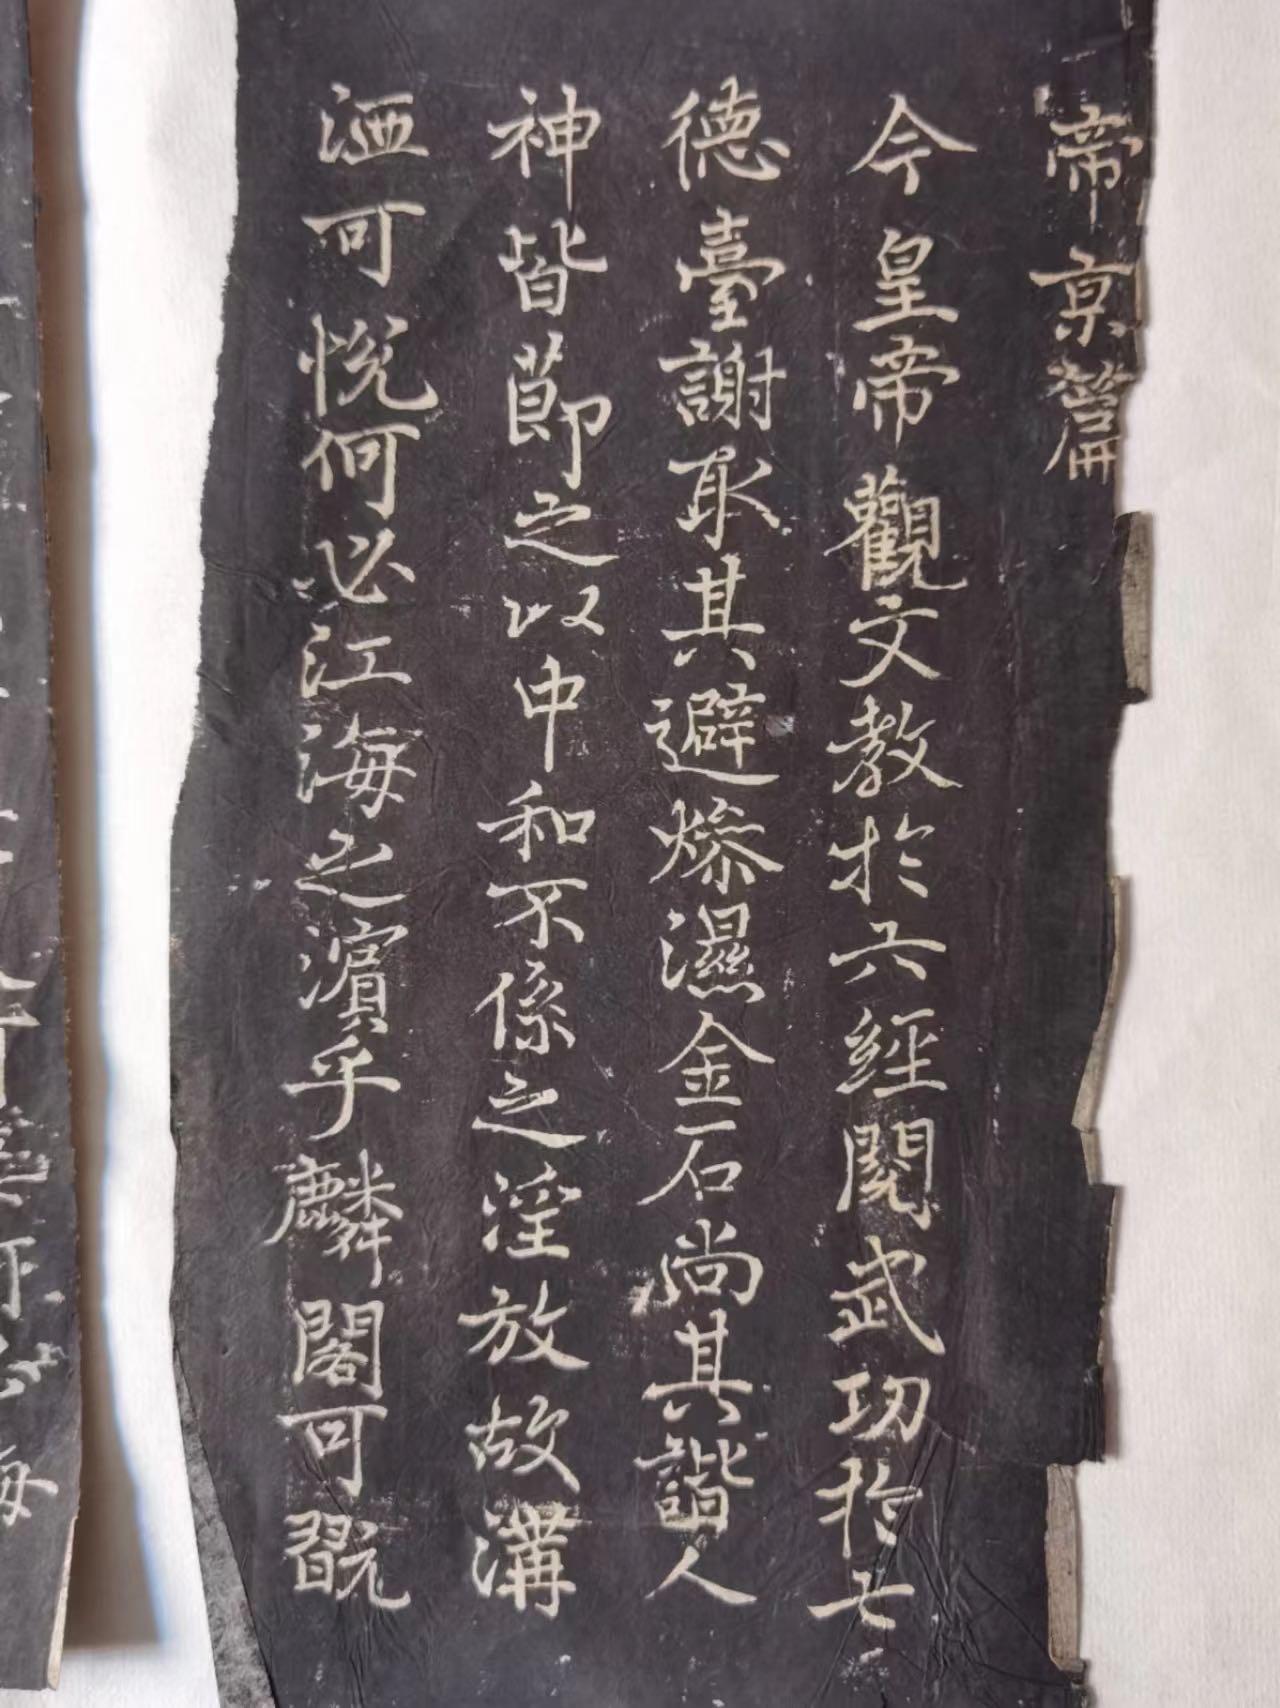 帝京篇
今皇帝觀文教於六經閱武功於七
德臺謝取其避燥濕金石尚其諧人
神皆節之以中和不係之淫放故溝
洒可悅何必江海之濱乎麟閣可翫